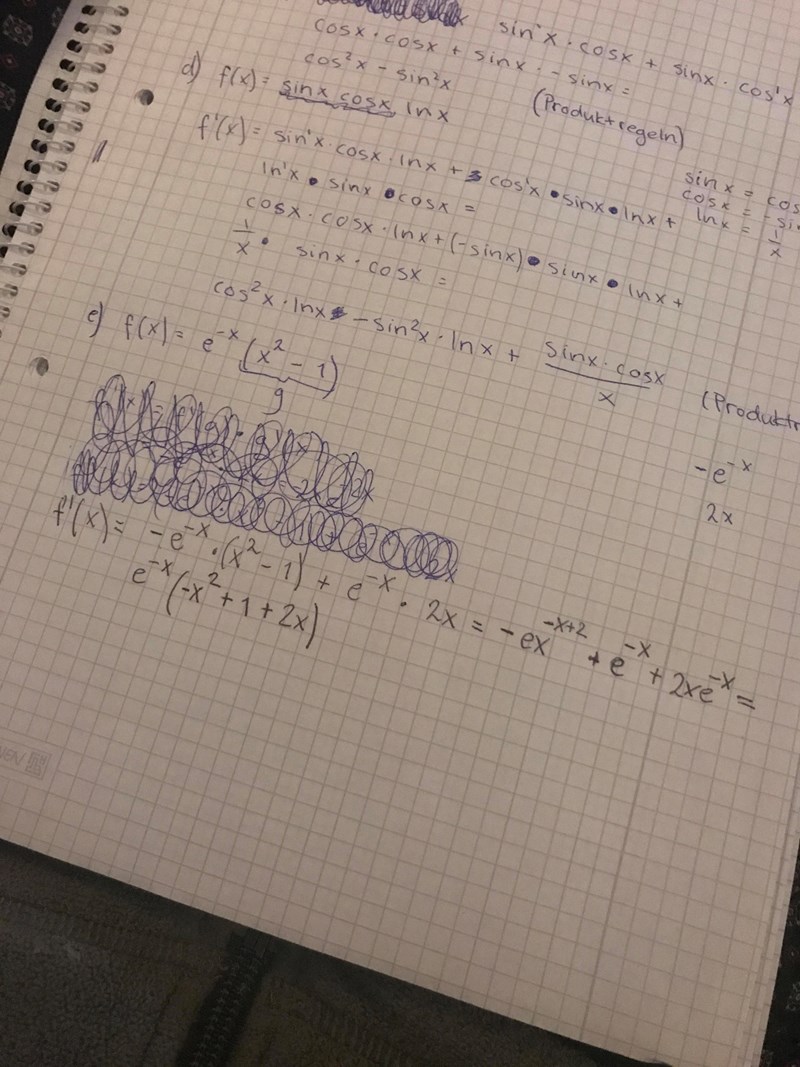 sin'x · cosx + sinx · cos'x
cosx · cosx + sinx · -sinx =
cos²x - sin²x
(Produktregeln)
d) f(x) = sinx cosx lnx
f'(x) = sin'x · cosx · lnx + cos'x · sinx · lnx +
ln'x · sinx · cosx =
sinx = cos
cosx = -si
lnx = 1/x
cosx · cosx · lnx + (-sinx) · sinx · lnx +
1/x · sinx · cosx =
cos²x · lnx - sin²x · lnx + sinx · cosx / x
(Produktr
e) f(x) = e^-x (x² - 1)
g
-e^-x
2x
f'(x) = -e^-x · (x² - 1) + e^-x · 2x = -ex^-x+2 + e^-x + 2xe^-x =
e^-x (-x² + 1 + 2x)